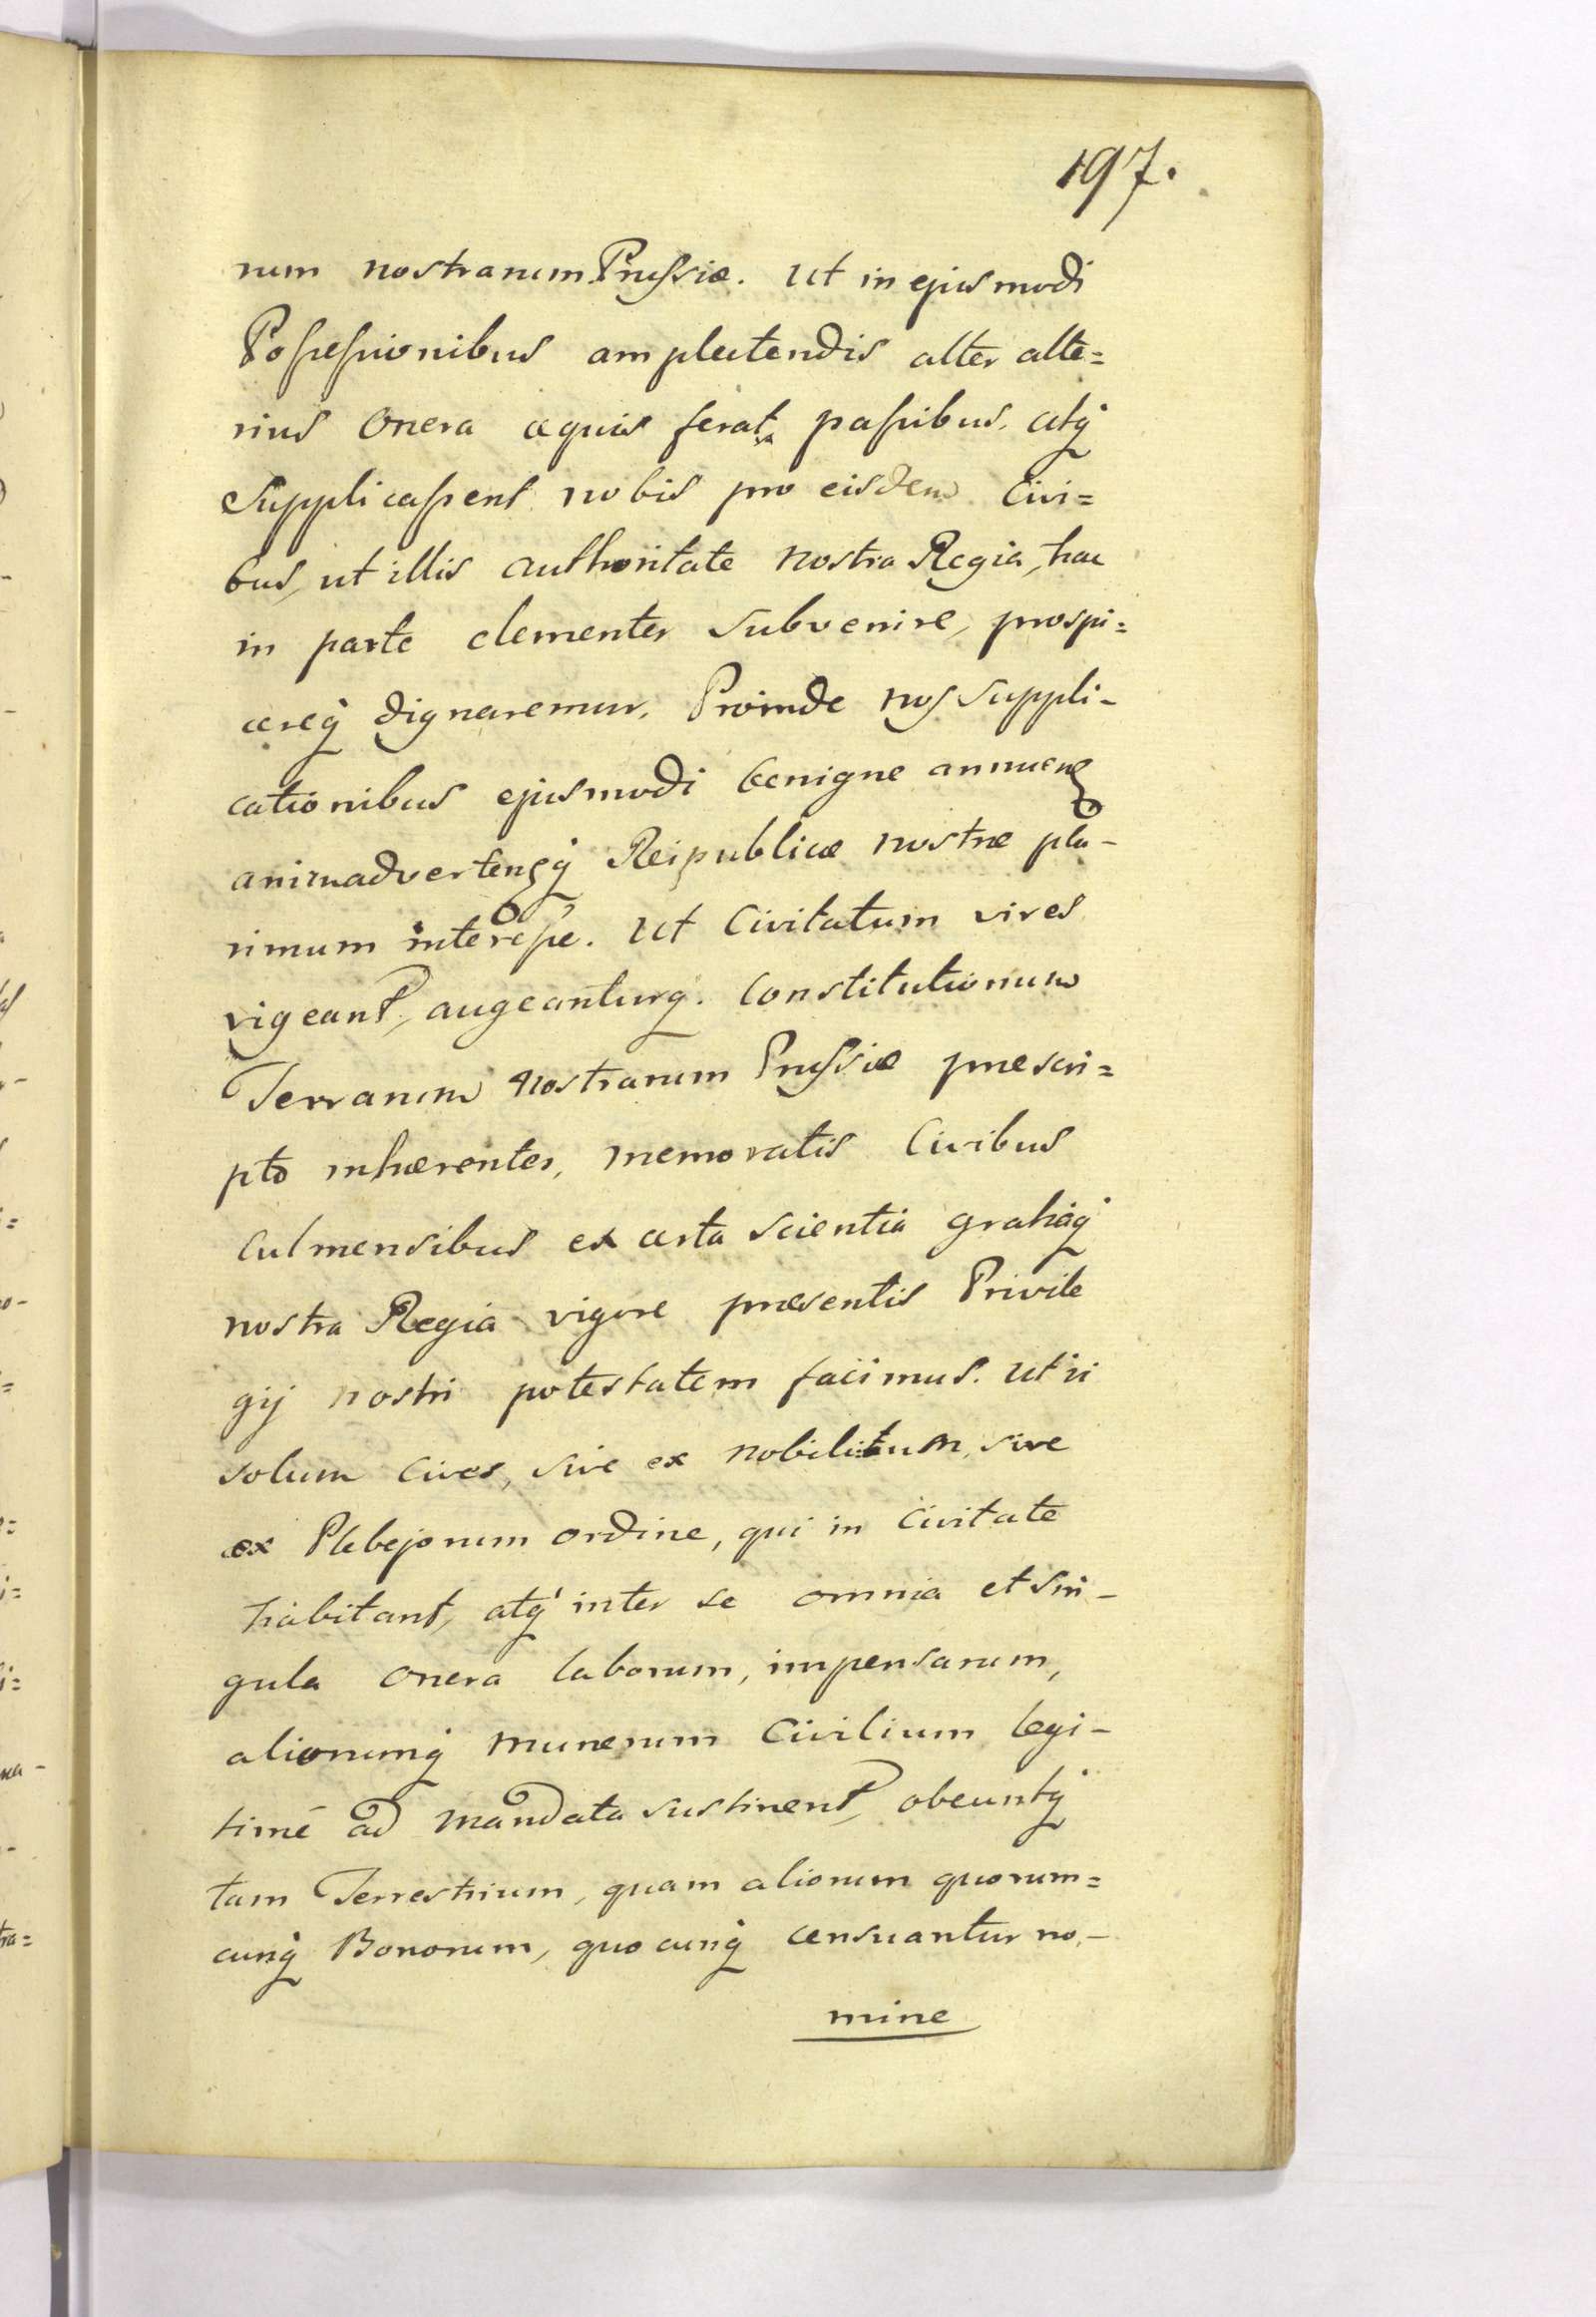 197.
rum nostrarum Prussiæ. Ut in ejusmodi
Possessionibus amplectendis alter alte=
rius Onera æquis ferat passibus, atq
Supplicassent nobis pro eisdem Civi=
bus, ut illis authoritate nostra Regia, hac
in parte clementer subvenire, prospi=
cereq dignaremur. Proinde nos suppli-
cationibus ejusmodi benigne annuen
animadvertensq Reipublicæ nostræ plu-
rimum interesse. Ut Civitatum vires
vigeant, augeanturq. Constitutionum
Terrarum nostrarum Prussiæ præscri=
pto inhærentes, memoratis Civibus
Culmensibus ex certa scientia gratiaq
nostra Regia vigore præsentis Privile
gij nostri potestatem facimus. Ut ii
solum Cives, sive ex nobilitum, sive
ex Plebejorum ordine, qui in Civitate
habitant, atq inter se omnia et sin-
gula onera laborum, impensarum,
aliorumq munerum Civilium legi-
timé ad mandata sustinent, obeuntq
tam Terrestrium, quam aliorum quorum=
cunq Bonorum, quocunq censuantur no-
mine